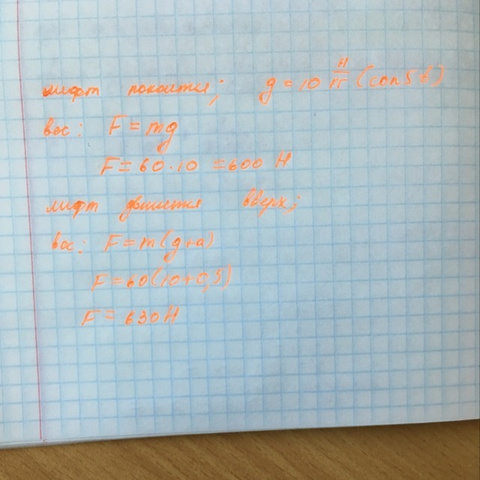 лифт покоится; g = 10 Н/кг (const)
вес: F = mg
F = 60·10 = 600 Н
лифт движется вверх;
вес: F = m(g+a)
F = 60(10+0,5)
F = 630 Н